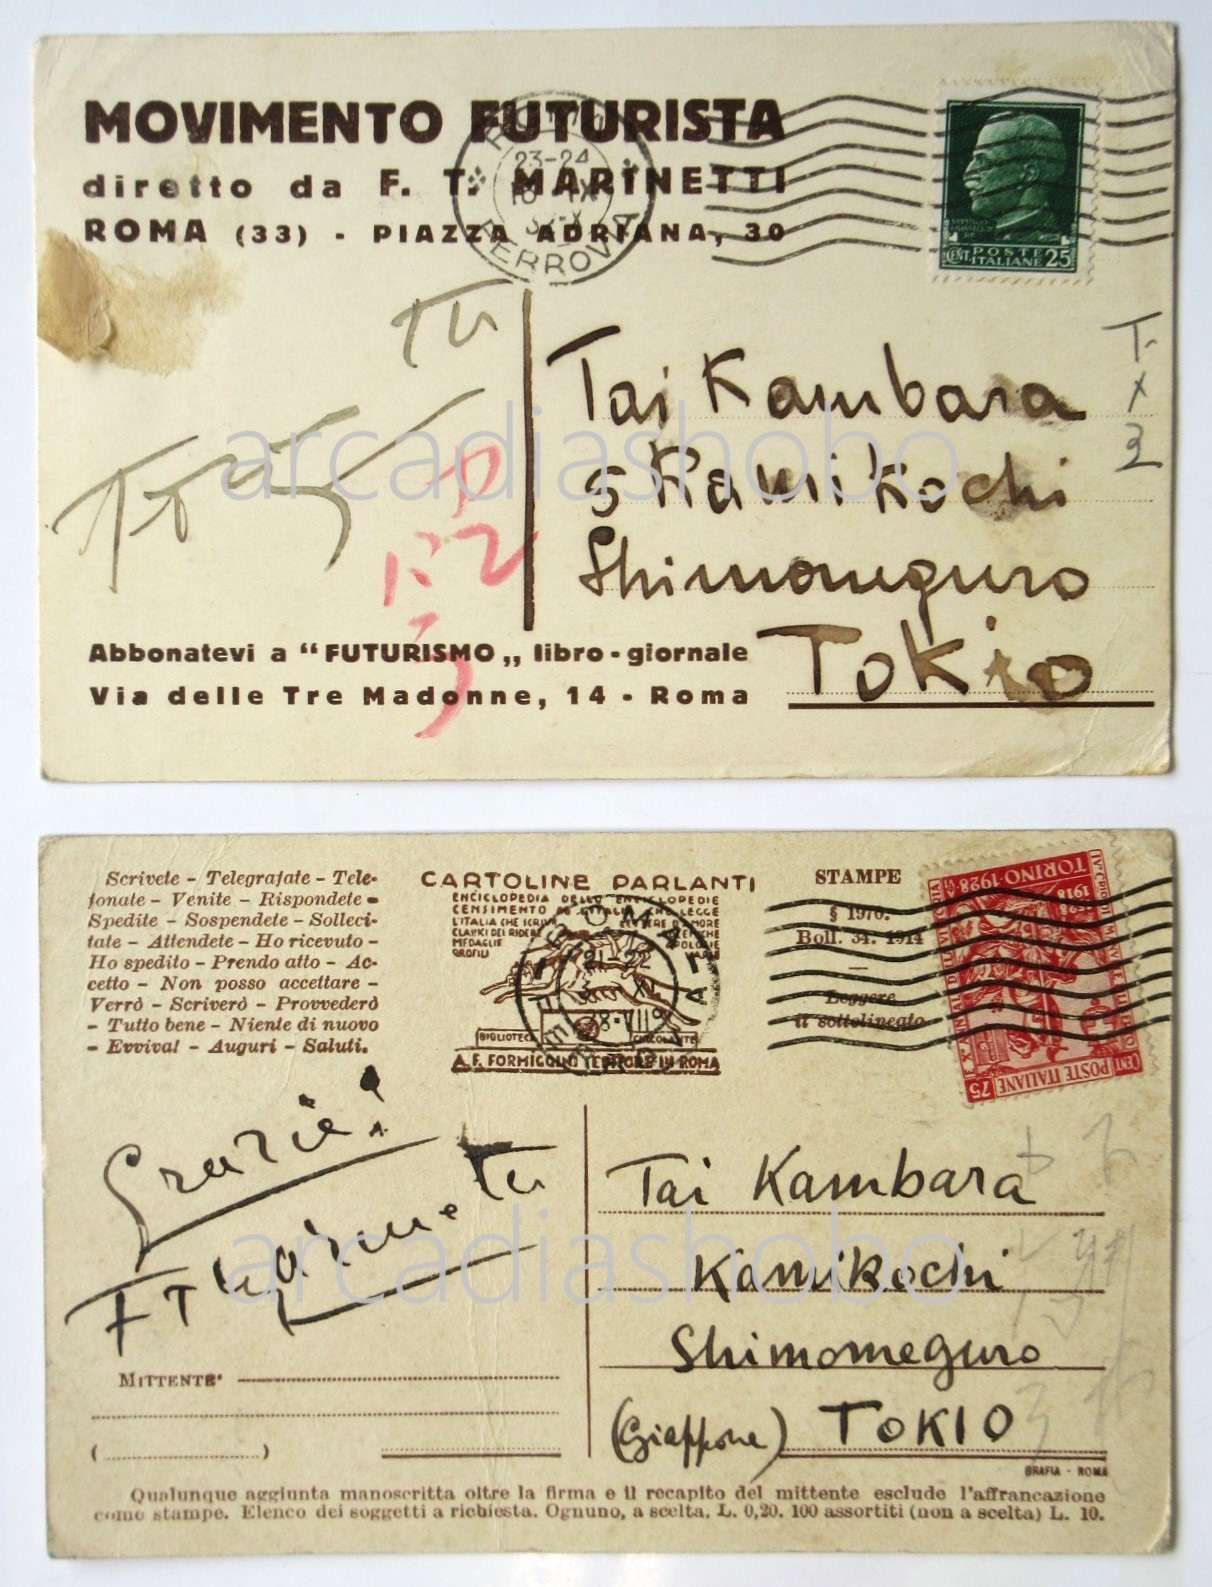 MOVIMENTO FUTURISTA
diretto da F. T. MARINETTI
ROMA (33) - PIAZZA ADRIANA, 30
23-24
FERROVIA
POSTE
CENT. ITALIANE 25
Tai Kambara
5 Kamikochi
Shimomeguro
Tokio
Abbonatevi a “FUTURISMO„ libro-giornale
Via delle Tre Madonne, 14 - Roma
arcadiashobo
Scrivete - Telegrafate - Tele-
fonate - Venite - Rispondete -
Spedite - Sospendete - Solleci-
tate - Attendete - Ho ricevuto -
Ho spedito - Prendo atto - Ac-
cetto - Non posso accettare -
Verrò - Scriverò - Provvederò
- Tutto bene - Niente di nuovo
- Evviva! - Auguri - Saluti.
CARTOLINE PARLANTI
ENCICLOPEDIA DELLE ENCICLOPEDIE
CENSIMENTO CHE LEGGE
L'ITALIA CHE SCRIVE
CLASSICI DEL RIDERE
MEDAGLIE
PROFILI
BIBLIOTECA CIRCOLANTE
A. F. FORMIGGINI EDITORE IN ROMA
STAMPE
§ 1970.
Boll. 34. 1914
Leggere
il sottolineato
TORINO-1928
POSTE ITALIANE
75
Grazie!
FT Marinetti
Tai Kambara
Kamikochi
Shimomeguro
(Giappone) TOKIO
MITTENTE
GRAFIA - ROMA
Qualunque aggiunta manoscritta oltre la firma e il recapito del mittente esclude l'affrancazione
come stampe. Elenco dei soggetti a richiesta. Ognuno, a scelta, L. 0,20. 100 assortiti (non a scelta) L. 10.
arcadiashobo